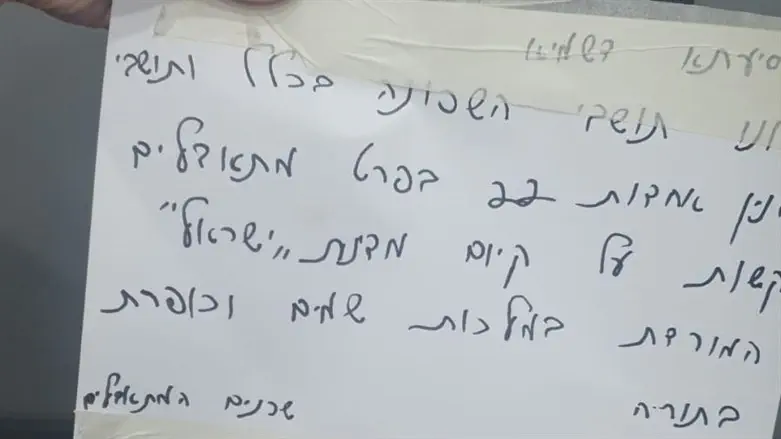 סיעתא דשמיא
תושבי השכונה בכלל ותושבי
אחדות 22 בפרט מתאבלים
קשות על קיום מדינת "ישראל"
המורדת במלכות שמים וכופרת
בתוריה
שכנים המתאבלים